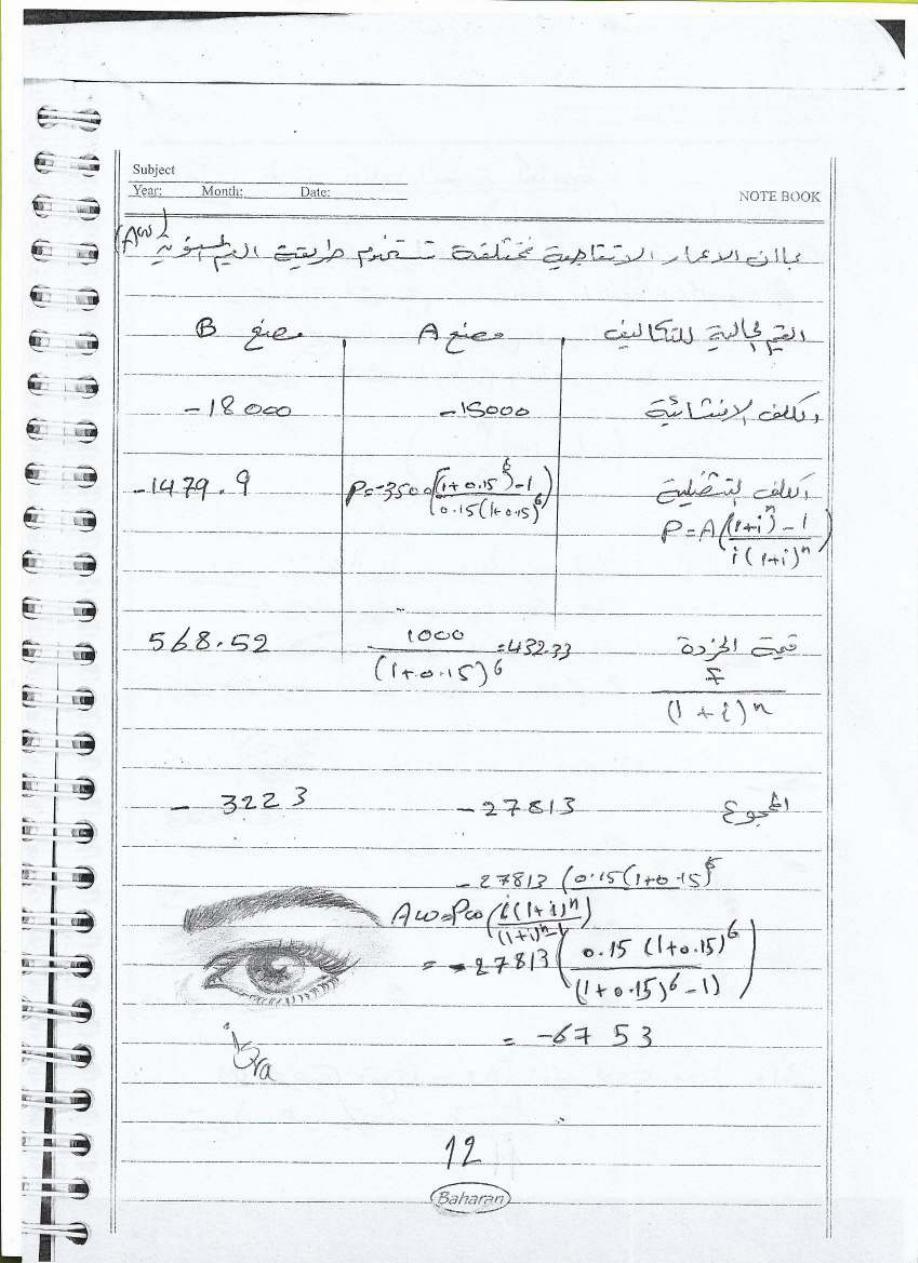 Subject
Year: Month: Date:
NOTE BOOK
بما ان الاعمار الانتاجية مختلفة تستخدم طريقة القيم السنوية (Aw)
القيم الحالية للتكاليف مصنع A مصنع B
الكلف الانشائية -15000 -18000
الكلف التشغيلية P=-3500((1+0.15)^6-1)/(0.15(1+0.15)^6) -1479.9
P=A((1+i)^n-1)/(i(1+i)^n)
قيمة الخردة 1000/(1+0.15)^6=432.33 568.52
F/(1+i)^n
المجموع -27813 - 3223
-27813 (0.15(1+0.15)^6
Aw=Pw(i(1+i)^n)/((1+i)^n-1)
= -27813(0.15 (1+0.15)^6)/((1+0.15)^6-1)
= -6753
12
Baharan